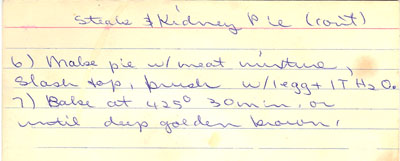 Steak & Kidney Pie (con't)
6) Make pie w/ meat mixture,
Slash top, brush w/ 1 egg + 1 T H2O.
7) Bake at 425° 30 min, or
until deep golden brown.